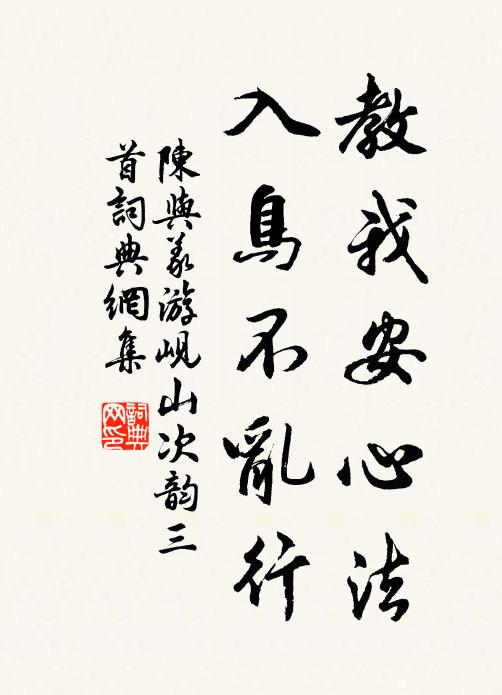 教我安心法
入鳥不亂行
陳與義游峴山次韵三
首詞典網集
詞典
网印